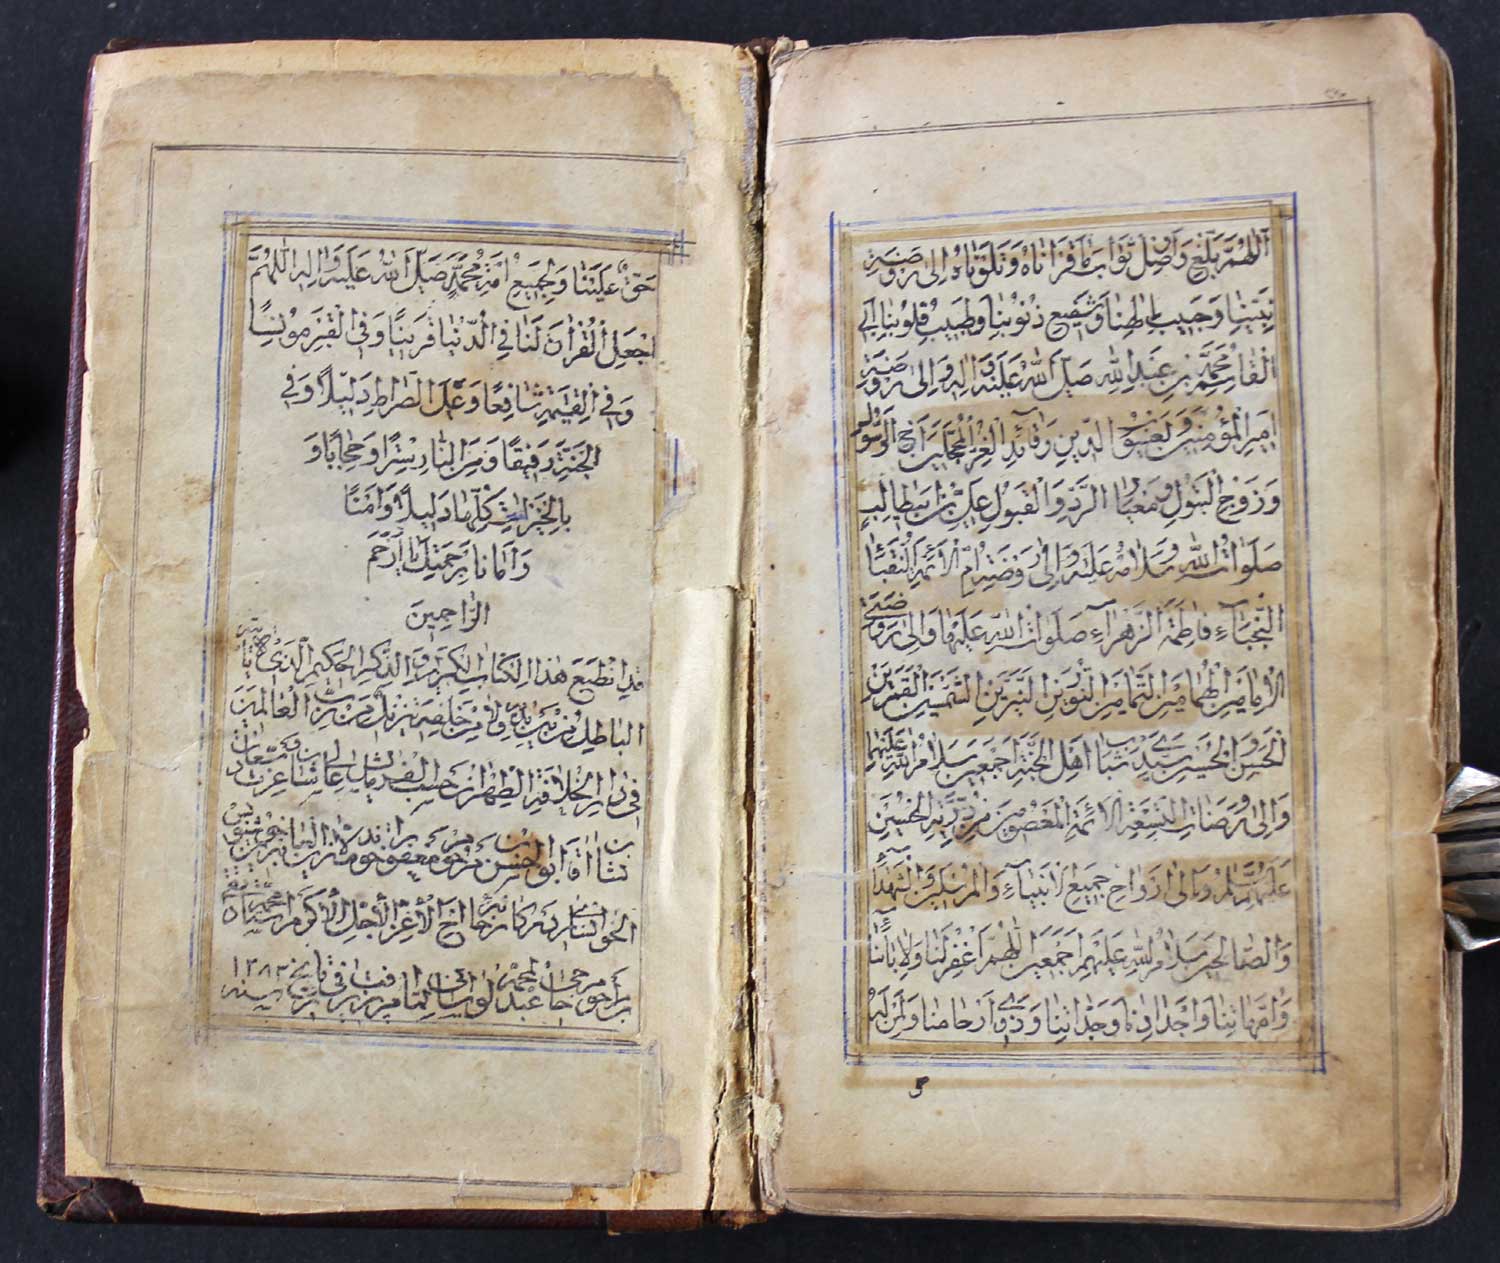 اَللّٰهُمَّ بَلِّغْ وَاَوْصِلْ ثَوَابَ مَا قَرَاْنَاهُ وَتَلَوْنَاهُ اِلٰى رَوْضَةِ
نَبِيِّنَا وَحَبِيبِ اِلٰهِنَا وَشَفِيعِ ذُنُوبِنَا وَطَبِيبِ قُلُوبِنَا اَبِى
الْقَاسِمِ مُحَمَّدِ بْنِ عَبْدِ اللهِ صَلَّى اللهُ عَلَيْهِ وَاٰلِهِ وَاِلٰى رَوْضَةِ
اَمِيرِ الْمُؤْمِنِينَ وَيَعْسُوبِ الدِّينِ وَقَائِدِ الْغُرِّ الْمُحَجَّلِينَ اَخِ الرَّسُولِ
وَزَوْجِ الْبَتُولِ وَمِعْيَارِ الرَّدِّ وَالْقَبُولِ عَلِيِّ بْنِ اَبِيطَالِبٍ
صَلَوَاتُ اللهِ وَسَلَامُهُ عَلَيْهِ وَاِلٰى رَوْضَةِ اُمِّ الْاَئِمَّةِ النُّقَبَاءِ
النُّجَبَاءِ فَاطِمَةَ الزَّهْرَاءِ صَلَوَاتُ اللهِ عَلَيْهَا وَاِلٰى رَوْضَتَيِ
الْاِمَامَيْنِ الْهُمَامَيْنِ التَّمَامَيْنِ النُّورَيْنِ النَّيِّرَيْنِ الشَّمْسَيْنِ الْقَمَرَيْنِ
الْحَسَنِ وَالْحُسَيْنِ سَيِّدَيْ شَبَابِ اَهْلِ الْجَنَّةِ اَجْمَعِينَ سَلَامُ اللهِ عَلَيْهِمَا
وَاِلٰى رَوْضَاتِ التِّسْعَةِ الْاَئِمَّةِ الْمَعْصُومِينَ مِنْ ذُرِّيَّةِ الْحُسَيْنِ
عَلَيْهِمُ السَّلَامُ وَاِلٰى اَرْوَاحِ جَمِيعِ الْاَنْبِيَاءِ وَالْمُرْسَلِينَ وَالشُّهَدَاءِ
وَالصَّالِحِينَ سَلَامُ اللهِ عَلَيْهِمْ اَجْمَعِينَ اَللّٰهُمَّ اغْفِرْ لَنَا وَلِاٰبَائِنَا
وَاُمَّهَاتِنَا وَاَجْدَادِنَا وَجَدَّاتِنَا وَذَوِي اَرْحَامِنَا وَلِمَنْ لَهُ
حَقٌّ عَلَيْنَا وَلِجَمِيعِ اُمَّةِ مُحَمَّدٍ صَلَّى اللهُ عَلَيْهِ وَاٰلِهِ اَللّٰهُمَّ
اجْعَلِ الْقُرْاٰنَ لَنَا فِي الدُّنْيَا قَرِينًا وَفِي الْقَبْرِ مُونِسًا
وَفِي الْقِيٰمَةِ شَافِعًا وَعَلَى الصِّرَاطِ دَلِيلًا وَفِي
الْجَنَّةِ رَفِيقًا وَمِنَ النَّارِ سِتْرًا وَحِجَابًا وَ
بِالْخَيْرَاتِ كُلِّهَا دَلِيلًا وَاٰمِنَّا
وَاٰمَانًا بِرَحْمَتِكَ يَا اَرْحَمَ
الرَّاحِمِينَ
قد انطبع هذا الكتاب الكريم والذكر الحكيم الذي لا ياتيه
الباطل من بين يديه ولا من خلفه تنزيل من رب العالمين
في دار الخلافة الطهران حسب الفرمايش عاليشان
الحاج الاعز الاجل الاكرم
في تاريخ سنه ١٢٨٣